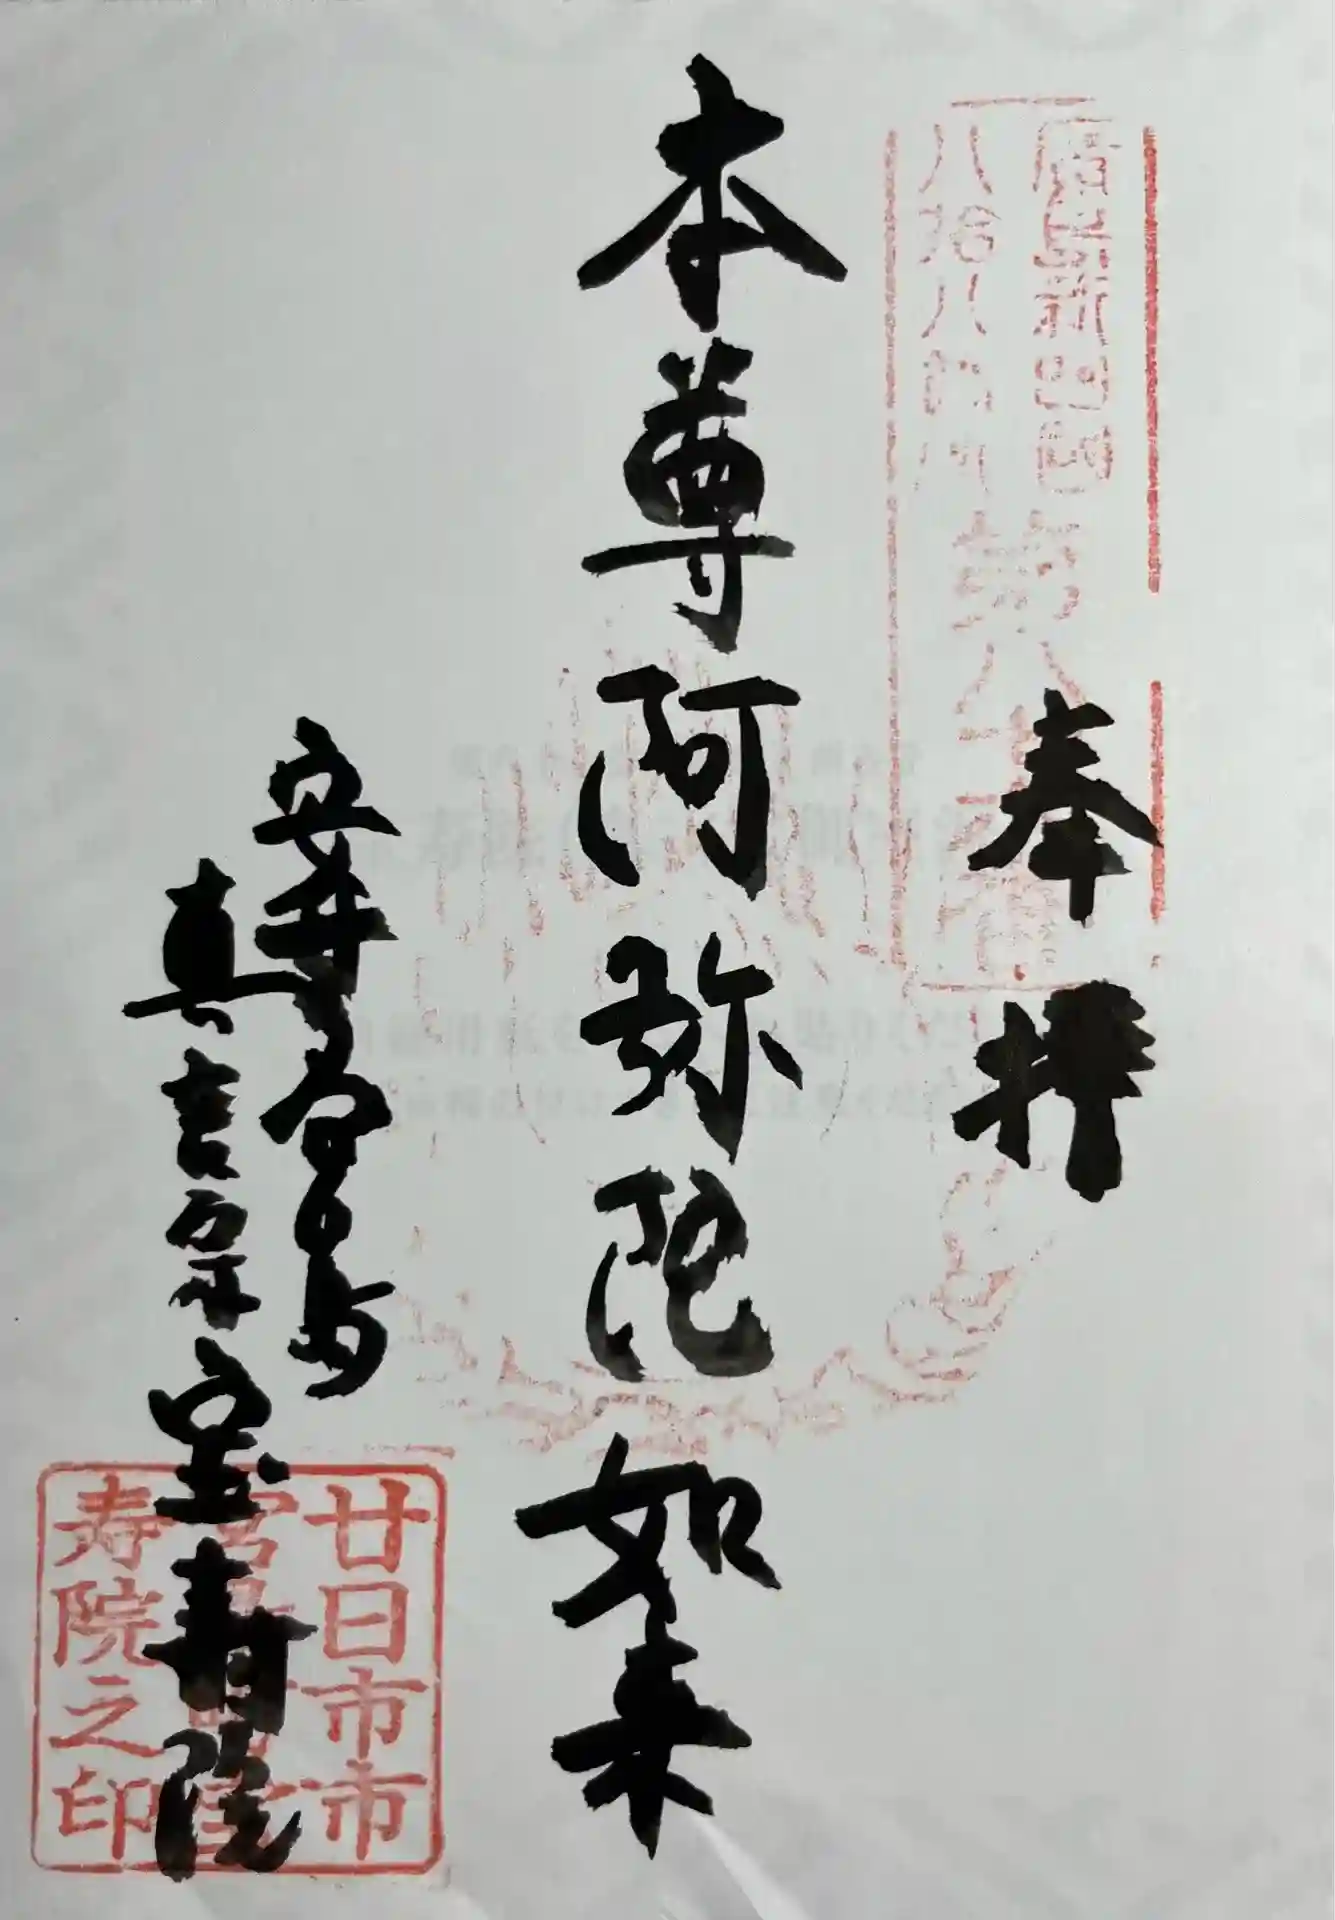 奉拝
廣島新四国
八拾八ヶ所
第八
本尊阿弥陀如来
安芸宮島
真言宗宝寿院
廿日市市
宮島町宝
寿院之印